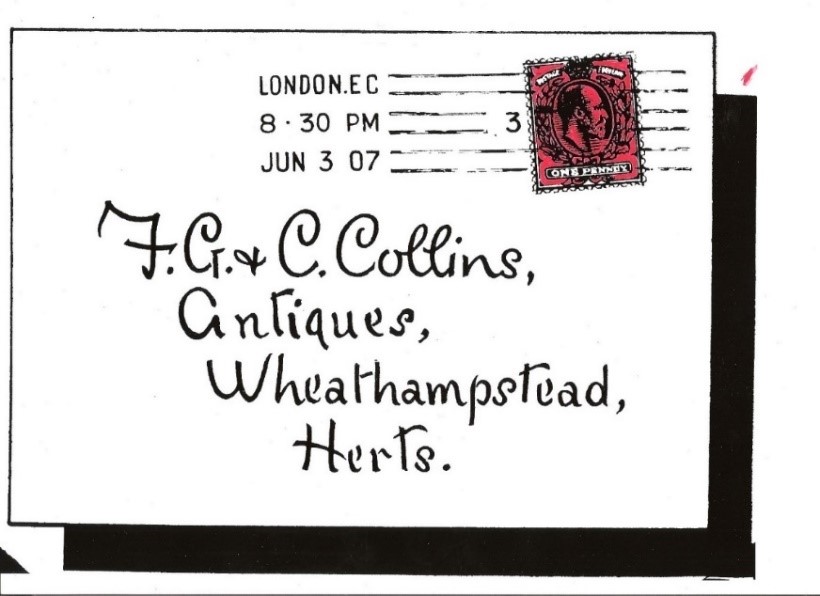 LONDON.EC
8·30 PM
JUN 3 07
3
POSTAGE
ONE PENNY
F.G. & C. Collins,
Antiques,
Wheathampstead,
Herts.